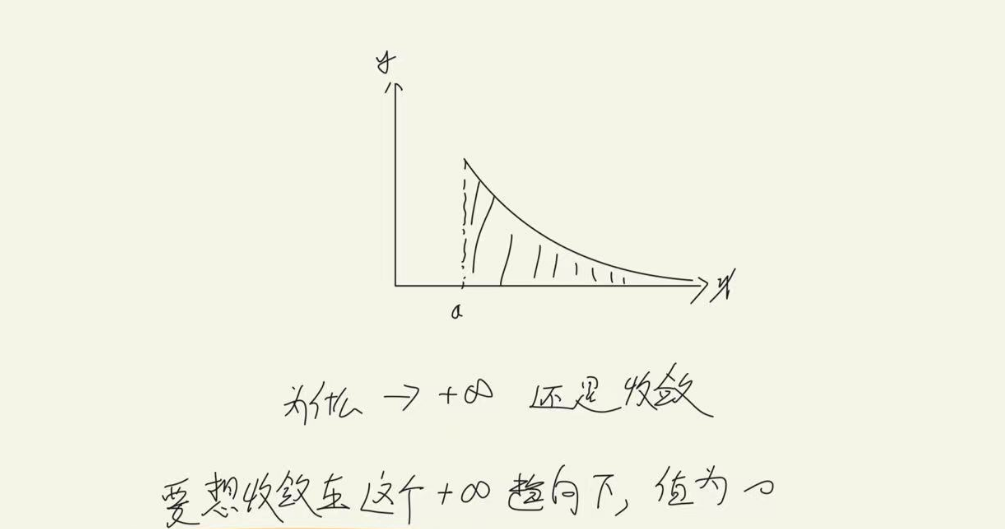 y
x
a
为什么 → +∞ 还是收敛
要想收敛在这个+∞趋向下, 值为0